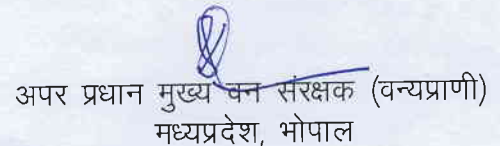 अपर प्रधान मुख्य वन संरक्षक (वन्यप्राणी)
मध्यप्रदेश, भोपाल